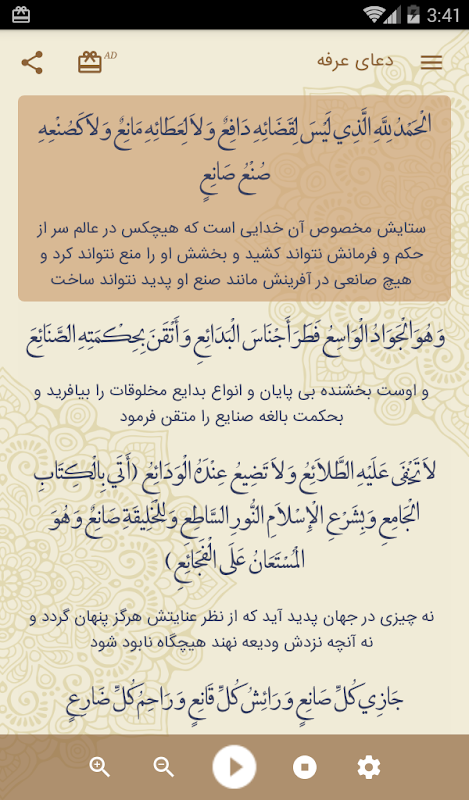 3:41
دعای عرفه
AD
اَلْحَمْدُ لِلَّهِ الَّذِي لَيْسَ لِقَضَائِهِ دَافِعٌ وَ لاَ لِعَطَائِهِ مَانِعٌ وَ لاَ كَصُنْعِهِ
صُنْعُ صَانِعٍ
ستایش مخصوص آن خدایی است که هیچکس در عالم سر از
حکم و فرمانش نتواند کشید و بخشش او را منع نتواند کرد و
هیچ صانعی در آفرینش مانند صنع او پدید نتواند ساخت
وَ هُوَ الْجَوَادُ الْوَاسِعُ فَطَرَ أَجْنَاسَ الْبَدَائِعِ وَ أَتْقَنَ بِحِكْمَتِهِ الصَّنَائِعَ
و اوست بخشنده بی پایان و انواع بدایع مخلوقات را بیافرید و
بحکمت بالغه صنایع را متقن فرمود
لاَ تَخْفَى عَلَيْهِ الطَّلاَئِعُ وَ لاَ تَضِيعُ عِنْدَهُ الْوَدَائِعُ (أَتَي بِالْكِتَابِ
الْجَامِعِ وَ بِشَرْعِ الْإِسْلاَمِ النُّورِ السَّاطِعِ وَ لِلْخَلِيقَةِ صَانِعٌ وَ هُوَ
الْمُسْتَعَانُ عَلَى الْفَجَائِعِ)
نه چیزی در جهان پدید آید که از نظر عنایتش هرگز پنهان گردد و
نه آنچه نزدش ودیعه نهند هیچگاه نابود شود
جَازِي كُلِّ صَانِعٍ وَ رَائِشُ كُلِّ قَانِعٍ وَ رَاحِمُ كُلِّ ضَارِعٍ